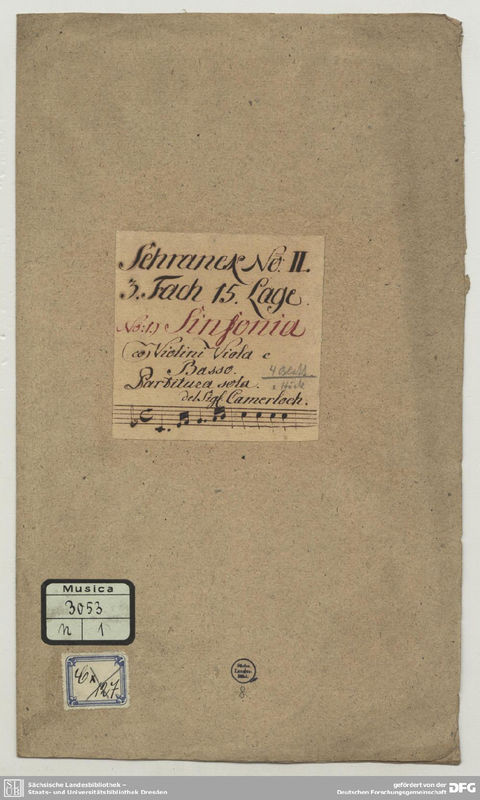 Schranck No: II.
3. Fach 15. Lage.
No: 1.) Sinfonia
co Violini Viola e
Basso.
4 Blatt
Partitura sola.
del Sigl Camerloch.
Musica
3053
n 1
Cx
127.
Sächs.
Landes-
Bibl.
8
SLUB
Sächsische Landesbibliothek –
Staats- und Universitätsbibliothek Dresden
gefördert von der
Deutschen Forschungsgemeinschaft
DFG